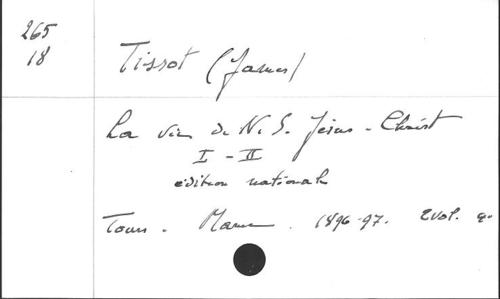 265
18
Tissot (James)
La vie de N. S. Jésus-Christ
I - II
édition nationale
Tours. Mame. 1896-97. 2 vol. 4°